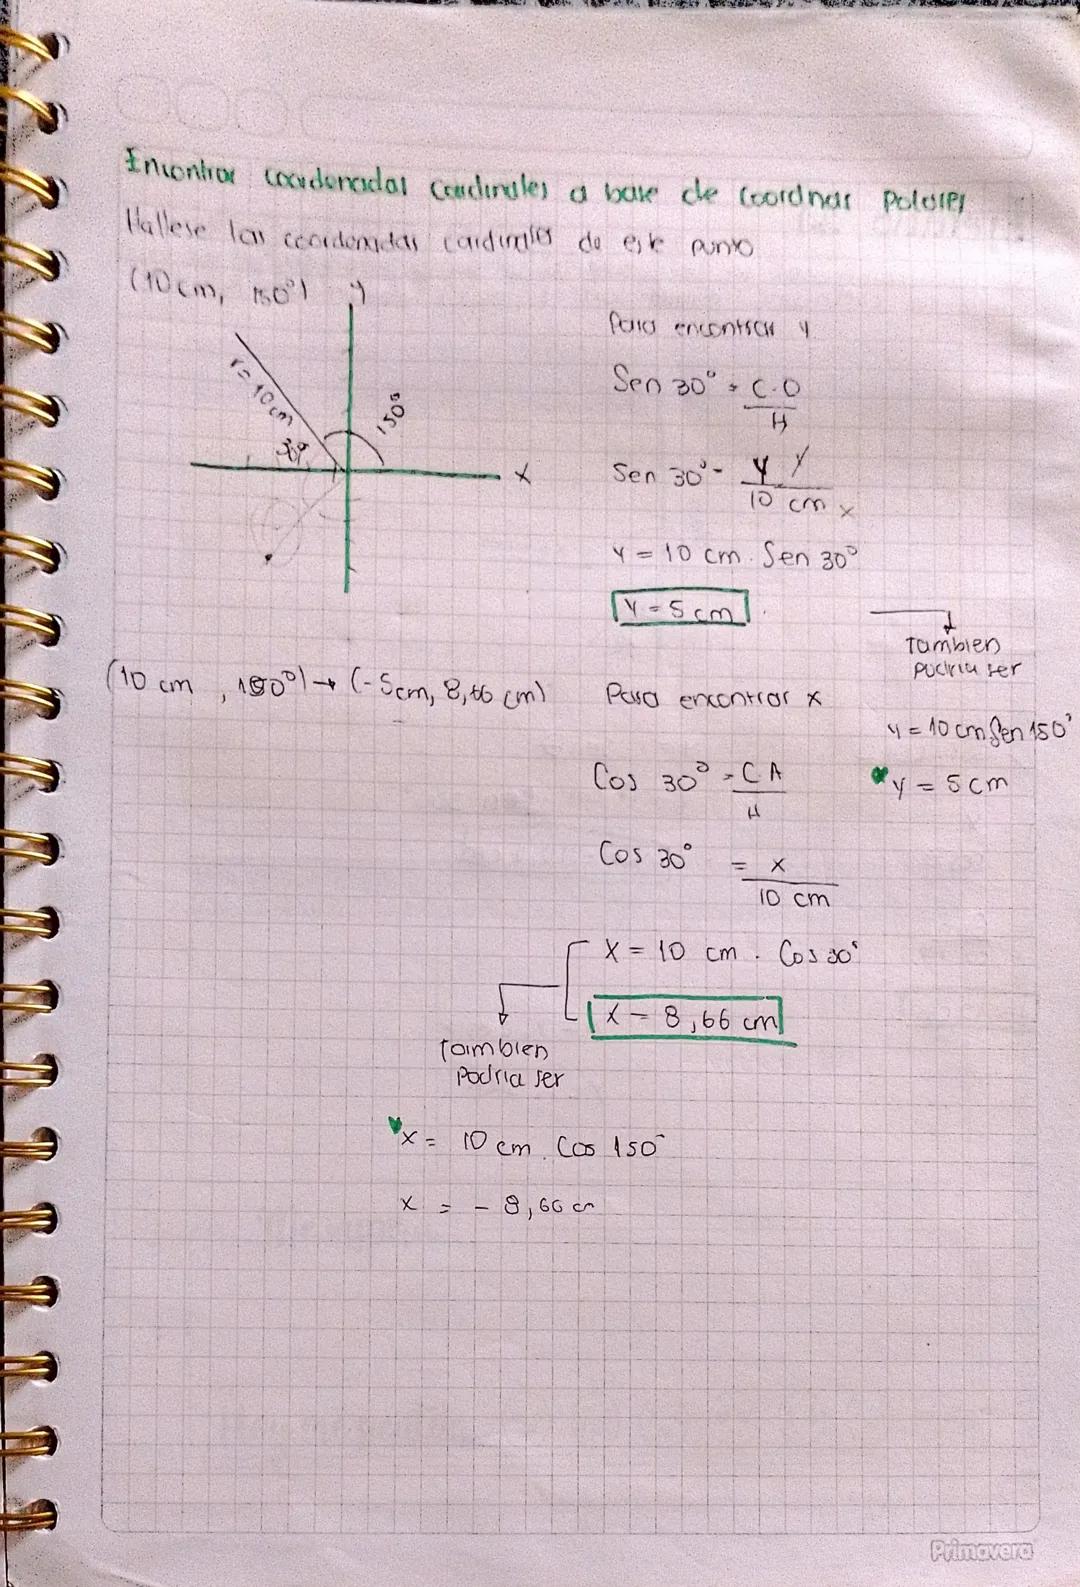 Encontrar coordenadas cardinales a base de coordnas Polares
Hallese las coordenadas cardinales de este punto
(10 cm, 150°)
y
r = 10 cm
30°
150°
x
Para encontrar y
Sen 30° = C.O
H
Sen 30° = y y
10 cm x
y = 10 cm . Sen 30°
y = 5 cm
Tambien
podria ser
y = 10 cm Sen 150°
y = 5 cm
(10 cm , 150°) → (-5cm, 8,66 cm)
Para encontrar x
Cos 30° = C A
H
Cos 30° = x
10 cm
x = 10 cm . Cos 30°
x = 8,66 cm
Tambien
podria ser
x = 10 cm . Cos 150°
x = - 8,66 cm
Primavera